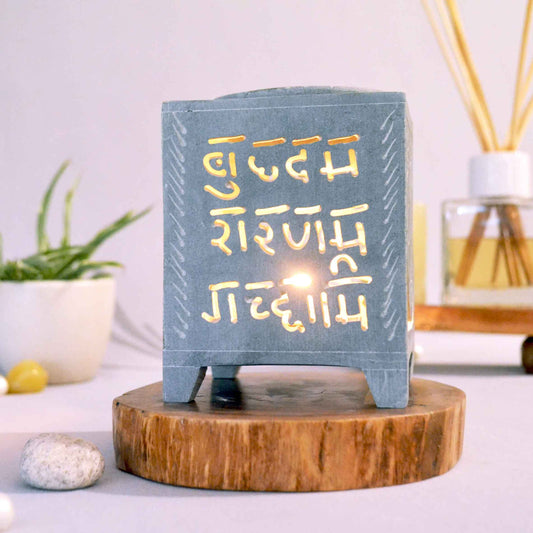 बुददम
शरणम्
गच्छाम